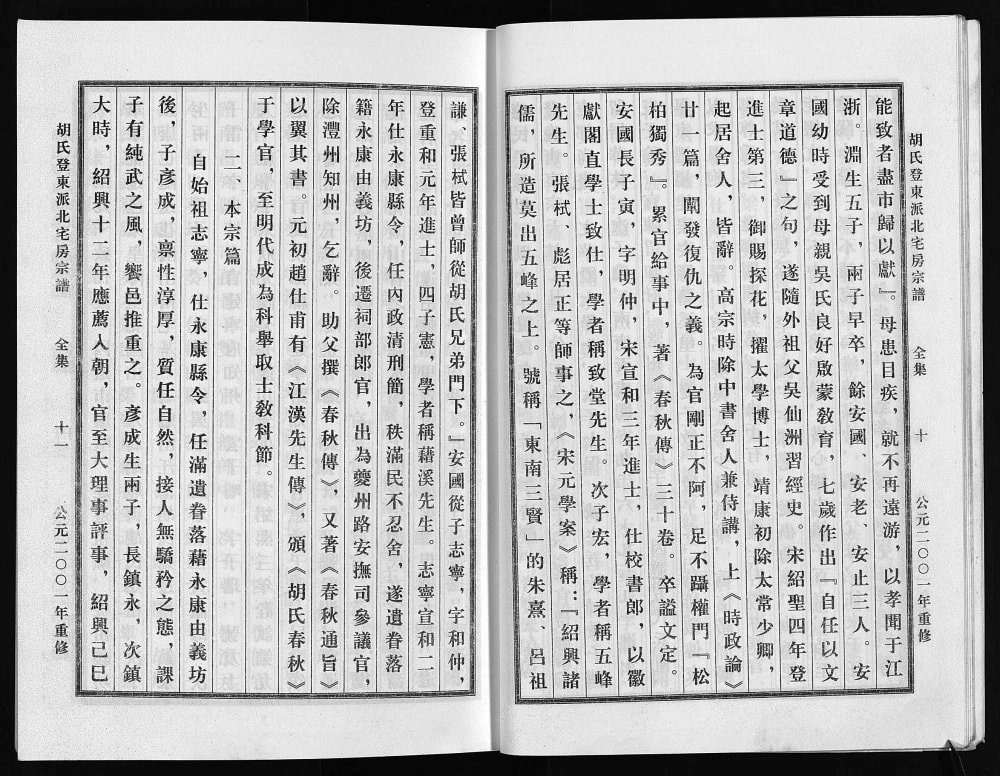 胡氏登東派北宅房宗譜　全集　十　公元二〇〇一年重修
能致者盡市歸以獻』。母患目疾，就不再遠游，以孝聞于江
浙。淵生五子，兩子早卒，餘安國、安老、安止三人。安
國幼時受到母親吳氏良好啟蒙教育，七歲作出『自任以文
章道德』之句，遂隨外祖父吳仙洲習經史。宋紹聖四年登
進士第三，御賜探花，擢太學博士，靖康初除太常少卿，
起居舍人，皆辭。高宗時除中書舍人兼侍講，上《時政論》
廿一篇，闡發復仇之義。為官剛正不阿，足不躡權門『松
柏獨秀』。累官給事中，著《春秋傳》三十卷。卒謚文定。
安國長子寅，字明仲，宋宣和三年進士，仕校書郎，以徽
獻閣直學士致仕，學者稱致堂先生。次子宏，學者稱五峰
先生。張栻、彪居正等師事之，《宋元學案》稱：『紹興諸
儒，所造莫出五峰之上。號稱「東南三賢」的朱熹、呂祖
謙、張栻皆曾師從胡氏兄弟門下。』安國從子志寧，字和仲，
登重和元年進士，四子憲，學者稱藉溪先生。志寧宣和二
年仕永康縣令，任內政清刑簡，秩滿民不忍舍，遂遺眷落
籍永康由義坊，後遷祠部郎官，出為夔州路安撫司參議官，
除澧州知州，乞辭。助父撰《春秋傳》，又著《春秋通旨》
以翼其書。元初趙仕甫有《江漢先生傳》，頒《胡氏春秋》
于學官，至明代成為科舉取士教科節。
二、本宗篇
自始祖志寧，仕永康縣令，任滿遺眷落藉永康由義坊
後，子彥成，稟性淳厚，質任自然，接人無驕矜之態，課
子有純武之風，饗邑推重之。彥成生兩子，長鎮永，次鎮
大時，紹興十二年應薦入朝，官至大理事評事，紹興己巳
胡氏登東派北宅房宗譜　全集　十一　公元二〇〇一年重修